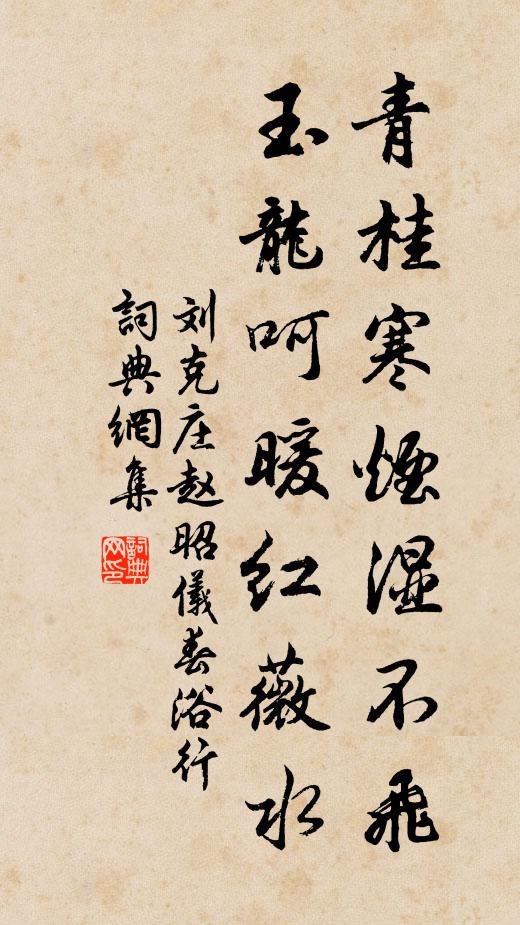 青桂寒煙湿不飛
玉龍呵暖红薇水
刘克庄赵昭儀春浴行
詞典網集
詞典网印